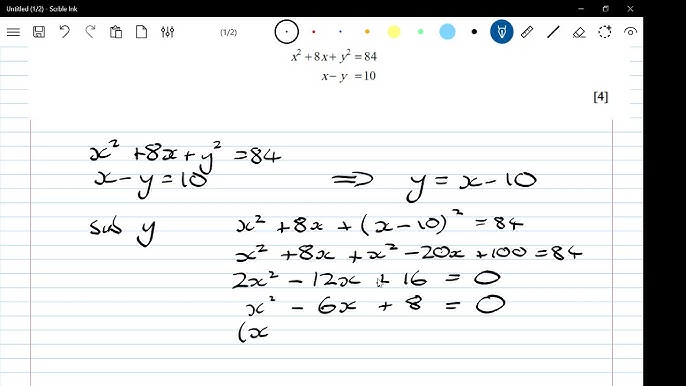 Untitled (1/2) - Scrble Ink
(1/2)
x² + 8x + y² = 84
x − y = 10
[4]
x² + 8x + y² = 84
x − y = 10 ⟹ y = x − 10
sub y x² + 8x + (x − 10)² = 84
x² + 8x + x² − 20x + 100 = 84
2x² − 12x + 16 = 0
x² − 6x + 8 = 0
(x